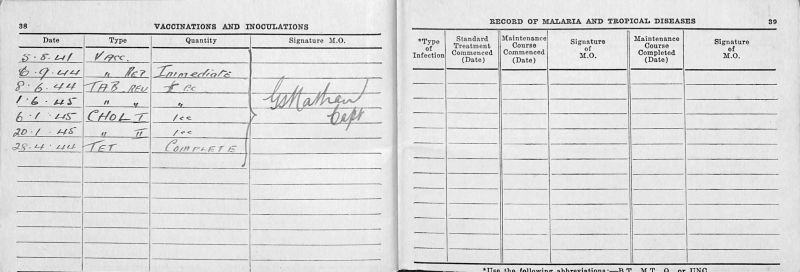 38 VACCINATIONS AND INOCULATIONS
Date Type Quantity Signature M.O.
5.5.41 VACC.
6.9.44 " RET Immediate
8.6.44 TAB REV ½ cc
1.6.45 " " "
6.1.45 CHOL I 1cc
20.1.45 " II 1cc
28.4.44 TET COMPLETE
Capt
RECORD OF MALARIA AND TROPICAL DISEASES 39
*Type of Infection
Standard Treatment Commenced (Date)
Maintenance Course Commenced (Date)
Signature of M.O.
Maintenance Course Completed (Date)
Signature of M.O.
*Use the following abbreviations:—B.T., M.T., Q., or UNC